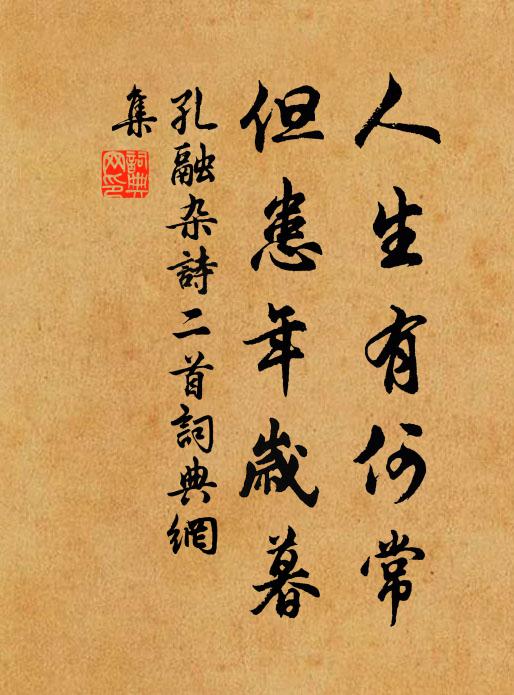 人生有何常
但患年歲暮
孔融杂詩二首詞典網
集
詞典
网印